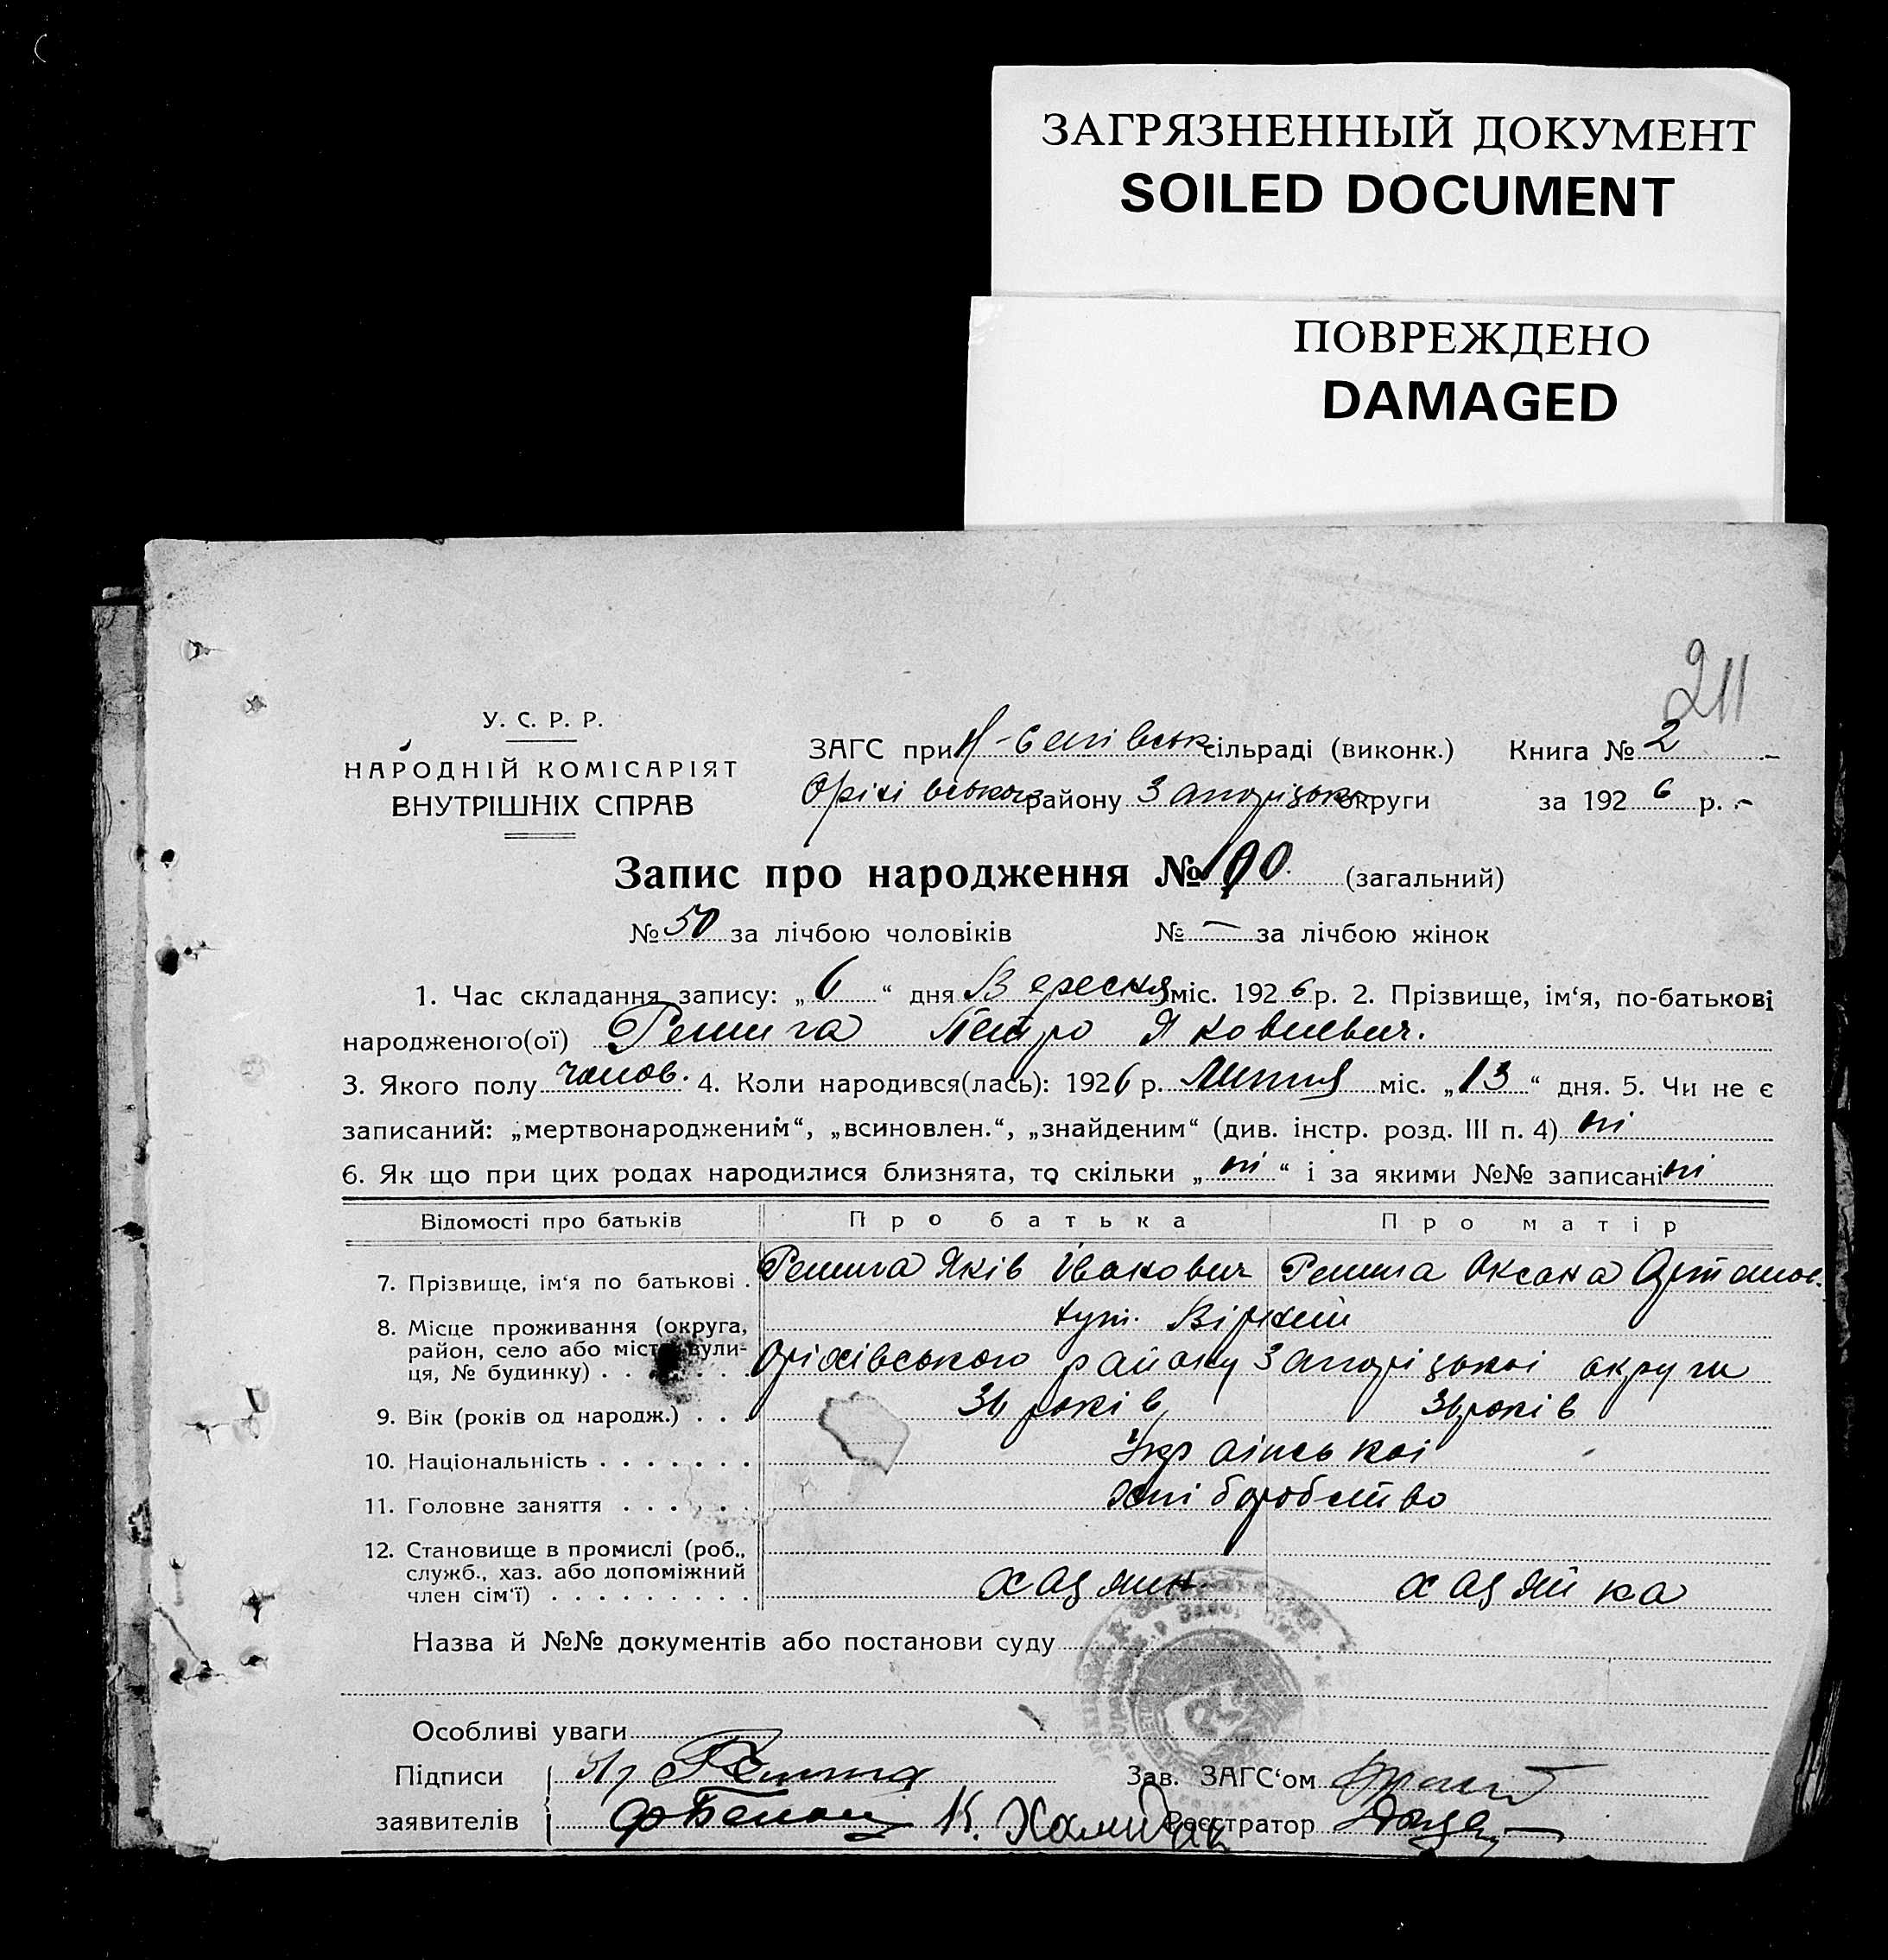 ЗАГРЯЗНЕННЫЙ ДОКУМЕНТ
SOILED DOCUMENT
ПОВРЕЖДЕНО
DAMAGED
211
У. С. Р. Р.
НАРОДНІЙ КОМІСАРІЯТ
ВНУТРІШНІХ СПРАВ
ЗАГС при сільраді (виконк.) Книга № 2
Оріхівського району Запорізької округи за 1926 р.
Запис про народження № (загальний)
№ 50 за лічбою чоловіків № — за лічбою жінок
1. Час складання запису: „6“ дня Вересня міс. 1926 р. 2. Прізвище, ім‘я, по-батькові
народженого(ої) Петро Якович.
3. Якого полу чолов. 4. Коли народився(лась): 1926 р. Липня міс. „13“ дня. 5. Чи не є
записаний: „мертвонародженим“, „всиновлен.“, „знайденим“ (див. інстр. розд. III п. 4) ні
6. Як що при цих родах народилися близнята, то скільки „ні“ і за якими №№ записані ні
Відомості про батьків Про батька Про матір
7. Прізвище, ім‘я по батькові . Яків Іванович Оксана
8. Місце проживання (округа,
район, село або місто, вули-
ця, № будинку) . . . . . Оріхівського району Запорізької округи
9. Вік (років од народж.) . . . років років
10. Національність . . . . . . . Української
11. Головне заняття . . . . . . хліборобство
12. Становище в промислі (роб.,
служб., хаз. або допоміжний
член сім‘ї) . . . . . . . . . хазяїн хазяйка
Назва й №№ документів або постанови суду
Особливі уваги
Підписи Зав. ЗАГС‘ом
заявителів Реєстратор